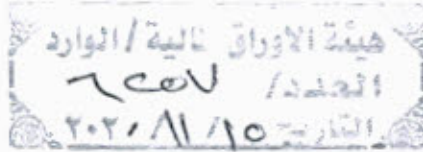 هيئة الاوراق المالية / الوارد
العدد / ٦٢٥٧
التاريخ ٢٠٢٠/١١/١٥